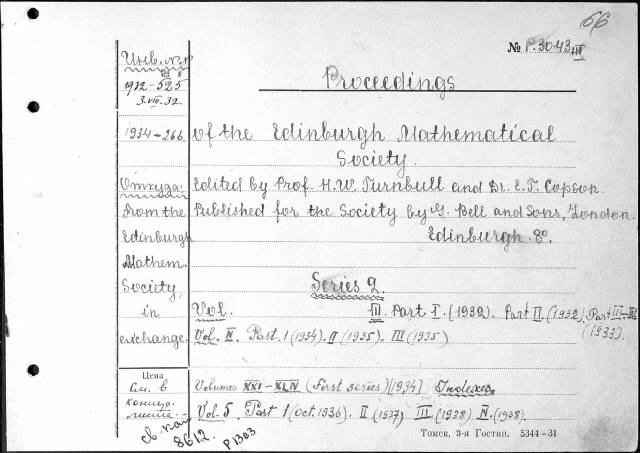 66
№ P.3043 III
Инв. №№
1932-525
3.VIII.32.
Proceedings
1934-266
of the Edinburgh Mathematical
Society.
Откуда:
Edited by Prof. H.W. Turnbull and Dr. E.T. Copson.
From the
Published for the Society by G. Bell and Sons, London.
Edinburgh
Edinburgh. 8º.
Mathem.
Society,
Series 2.
in
Vol. III. Part I. (1932). Part II. (1932). Part III-IV
(1933).
exchange.
Vol. IV. Part. 1 (1934). II (1935). III (1935)
Цена
См. в
Volumes XXI-XLIV (First series) [1934] Indexes.
контр.
листе.-
Vol. 5. Part 1 (Oct. 1936). II (1937) III (1938) IV. (1938).
св. кат
8612. P1303
Томск, 3-я Гостип. 5344-31